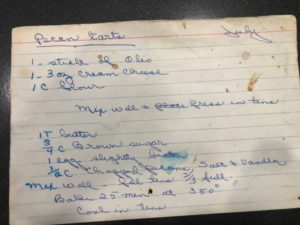 Pecan Tarts
Judy
1 - stick of Oleo
1 - 3 oz cream cheese
1 C flour
Mix well & press in tins
1 T butter
3/4 C Brown sugar
1 egg slightly beaten
1/2 C Chopped Pecans, Salt & Vanilla
Mix well - fill tins 2/3 full.
Bake 25 min at 350°
Cool in tins